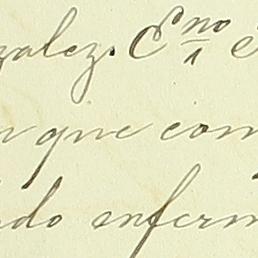 zalez. Eno
que com
do enferm